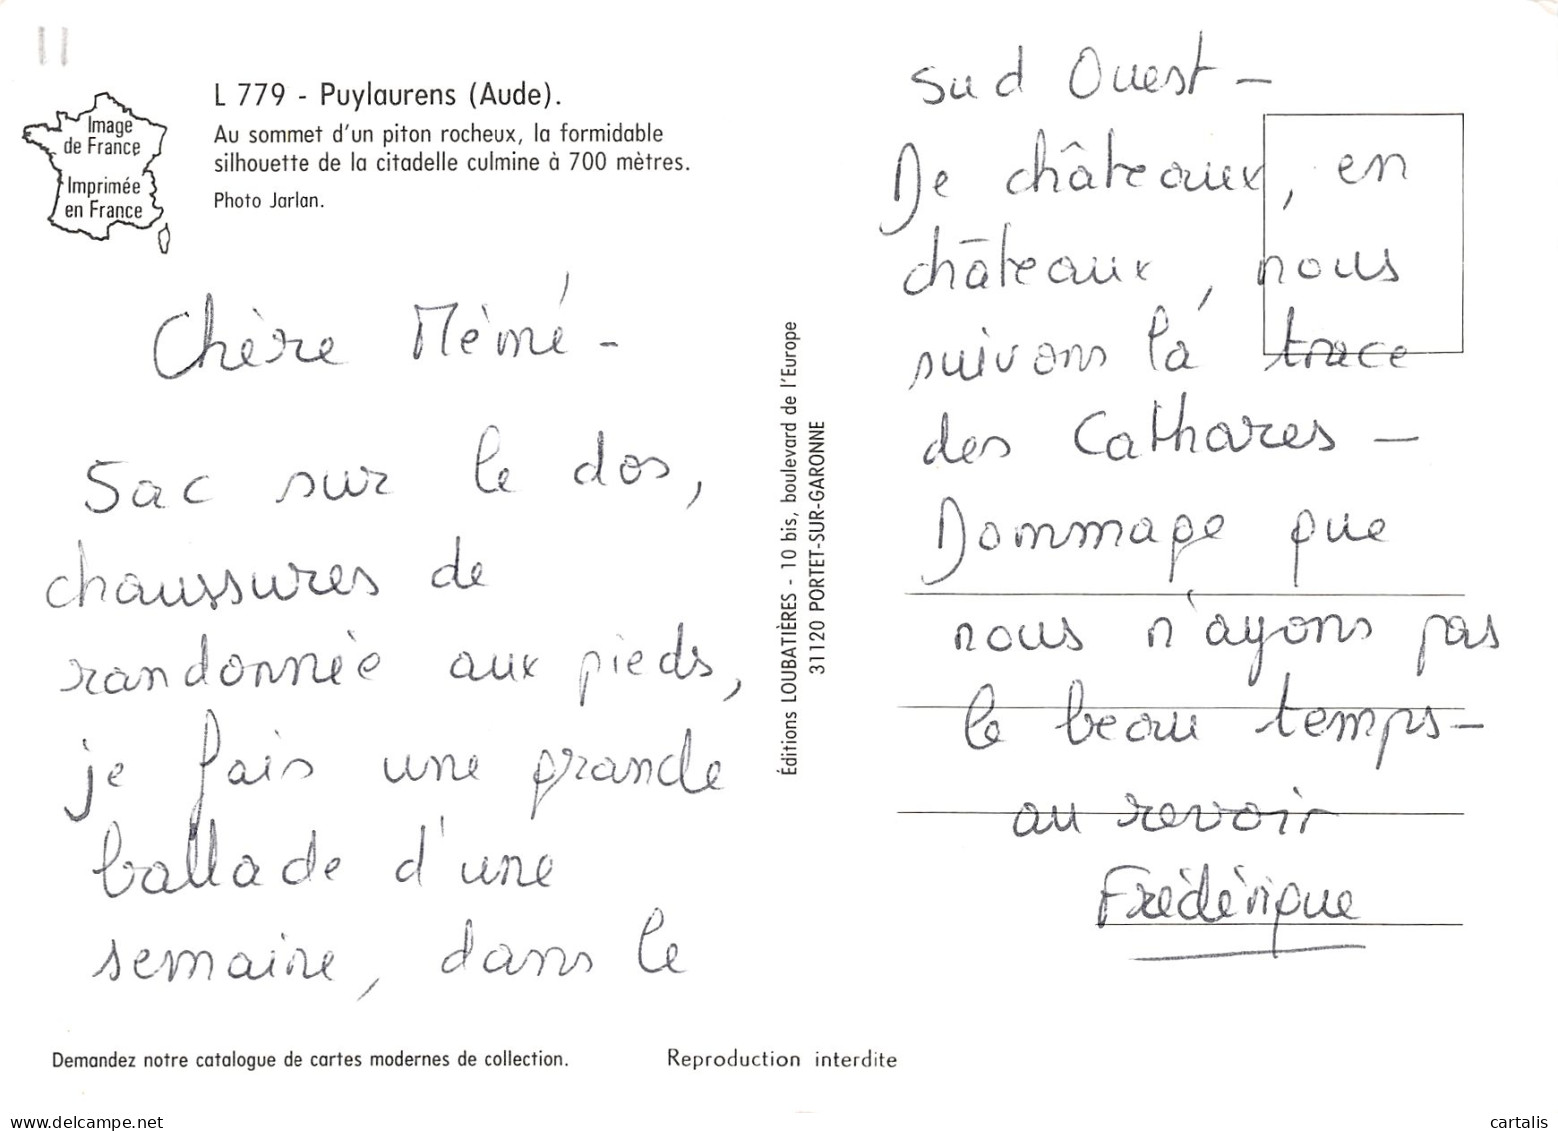 L 779 - Puylaurens (Aude).
Au sommet d'un piton rocheux, la formidable
silhouette de la citadelle culmine à 700 mètres.
Photo Jarlan.
Image
de France
Imprimée
en France
Chère Mèmé -
Sac sur le dos,
chaussures de
randonnée aux pieds,
je fais une grande
ballade d'une
semaine, dans le
Demandez notre catalogue de cartes modernes de collection.
Reproduction interdite
Éditions LOUBATIÈRES - 10 bis, boulevard de l'Europe
31120 PORTET-SUR-GARONNE
Sud Ouest -
De châteaux, en
châteaux, nous
suivons la trace
des Cathares -
Dommage que
nous n'ayons pas
le beau temps -
au revoir
Frédérique
www.delcampe.net
cartalis